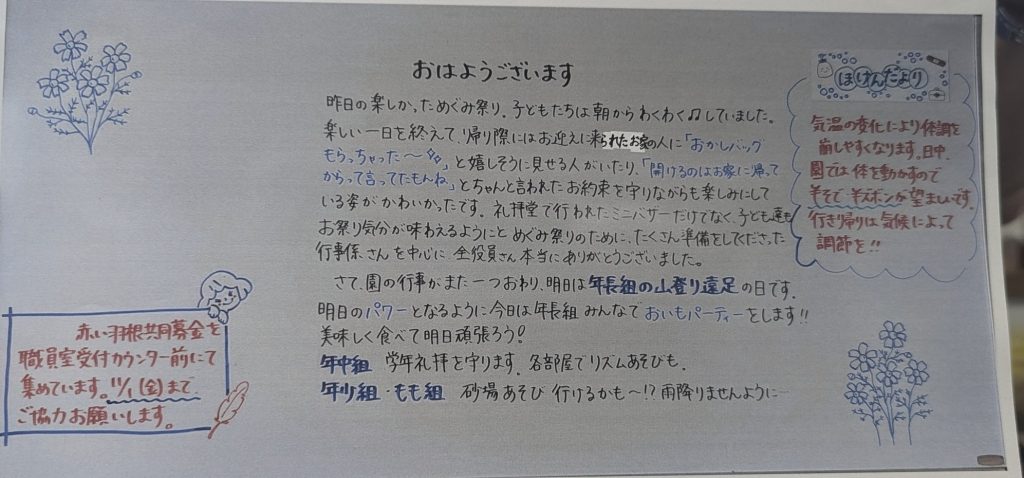 おはようございます
昨日の楽しかっためぐみ祭り。子どもたちは朝からわくわく♫していました。
楽しい一日を終えて、帰り際にはお迎えに来られたお家の人に「おかしバッグ
もらっちゃった〜」と嬉しそうに見せる人がいたり、「開けるのはお家に帰って
からって言ってたもんね」とちゃんと言われたお約束を守りながらも楽しみにして
いる姿がかわいかったです。礼拝堂で行われたミニバザーだけでなく、子ども達も
お祭り気分が味わえるようにと めぐみ祭りのために、たくさん準備をしてくださった
行事係さんを中心に、全役員さん本当にありがとうございました。
さて、園の行事がまた一つおわり、明日は年長組の山登り遠足の日です。
明日のパワーとなるように今日は年長組みんなでおいもパーティーをします!!
美味しく食べて明日頑張ろう!
年中組 学年礼拝を守ります。各部屋でリズムあそびも。
年少組・もも組 砂場あそび 行けるかも〜!?雨降りませんように…
ほけんだより
気温の変化により体調を
崩しやすくなります。日中、
園では体を動かすので
半そで、半ズボンが望ましいです。
行き帰りは気候によって
調節を!!
赤い羽根共同募金を
職員室受付カウンター前にて
集めています。11/1(金)まで
ご協力お願いします。